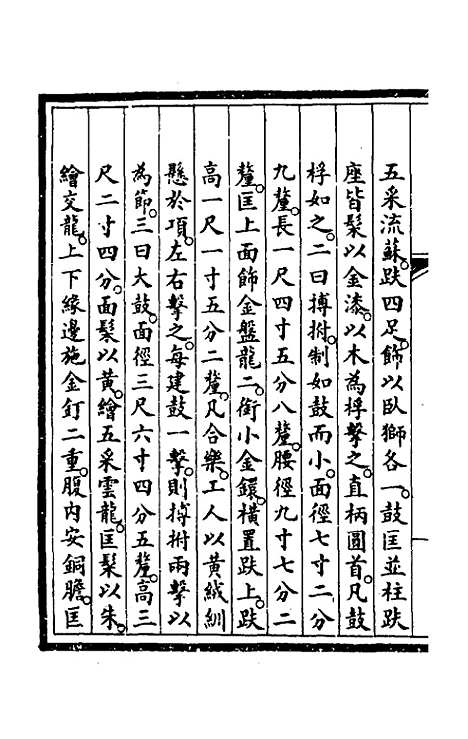 五采流蘇。趺四足。飾以臥獅各一。鼓匡並柱趺
座皆髹以金漆。以木為桴擊之。直柄圓首。凡鼓
桴如之。二曰搏拊。制如鼓而小。面徑七寸二分
九釐。長一尺四寸五分八釐。腰徑九寸七分二
釐。匡上面飾金盤龍二。銜小金鐶。橫置趺上。趺
高一尺一寸五分二釐。凡合樂。工人以黃絨紃
懸於項。左右擊之。每建鼓一擊。則搏拊兩擊以
為節。三曰大鼓。面徑三尺六寸四分五釐。高三
尺二寸四分。面髹以黃。繪五采雲龍。匡髹以朱。
繪交龍。上下緣邊施金釘二重。腹內安銅膽。匡